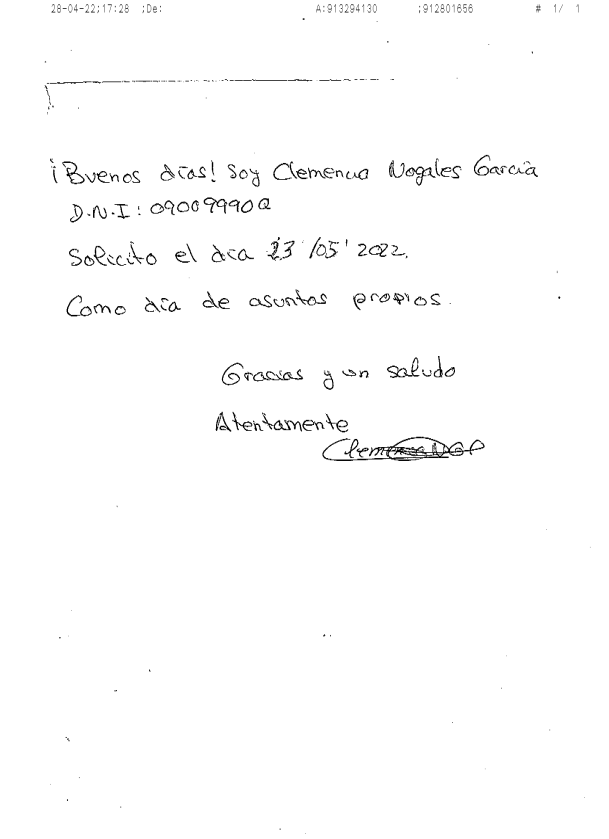 28-04-22;17:28 ;De: A:913294130 ;912801656 # 1/ 1
¡Buenos días! Soy Clemencia Nogales García
D.N.I: 09009990Q
Solicito el día 23/05/2022.
Como día de asuntos propios.
Gracias y un saludo
Atentamente